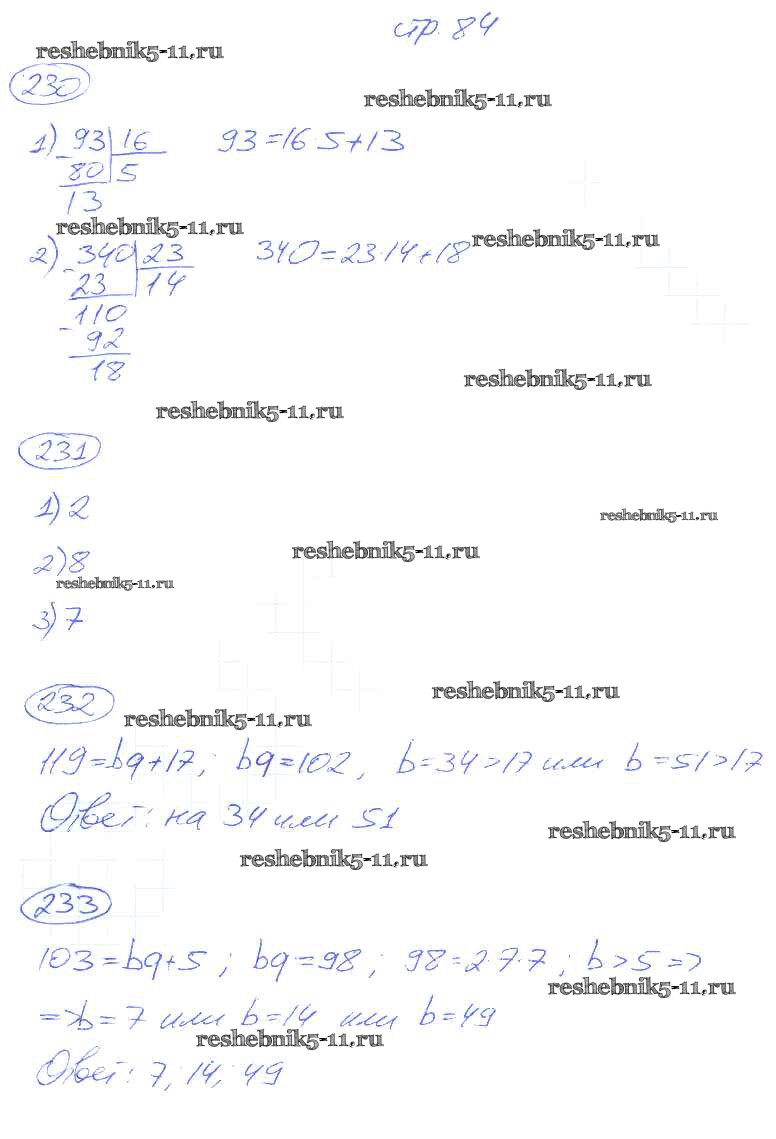 стр. 84
reshebnik5-11.ru
230
reshebnik5-11.ru
1) 93 | 16 93 = 16·5+13
- 80 | 5
13
reshebnik5-11.ru
2) 340 | 23 340 = 23·14+18 reshebnik5-11.ru
- 23 | 14
110
- 92
18
reshebnik5-11.ru
reshebnik5-11.ru
231
1) 2
reshebnik5-11.ru
2) 8 reshebnik5-11.ru
reshebnik5-11.ru
3) 7
232 reshebnik5-11.ru
reshebnik5-11.ru
119=bq+17; bq=102, b=34>17 или b=51>17
Ответ: на 34 или 51
reshebnik5-11.ru
reshebnik5-11.ru
233
103=bq+5; bq=98; 98=2·7·7; b>5 =>
reshebnik5-11.ru
=> b=7 или b=14 или b=49
reshebnik5-11.ru
Ответ: 7; 14; 49